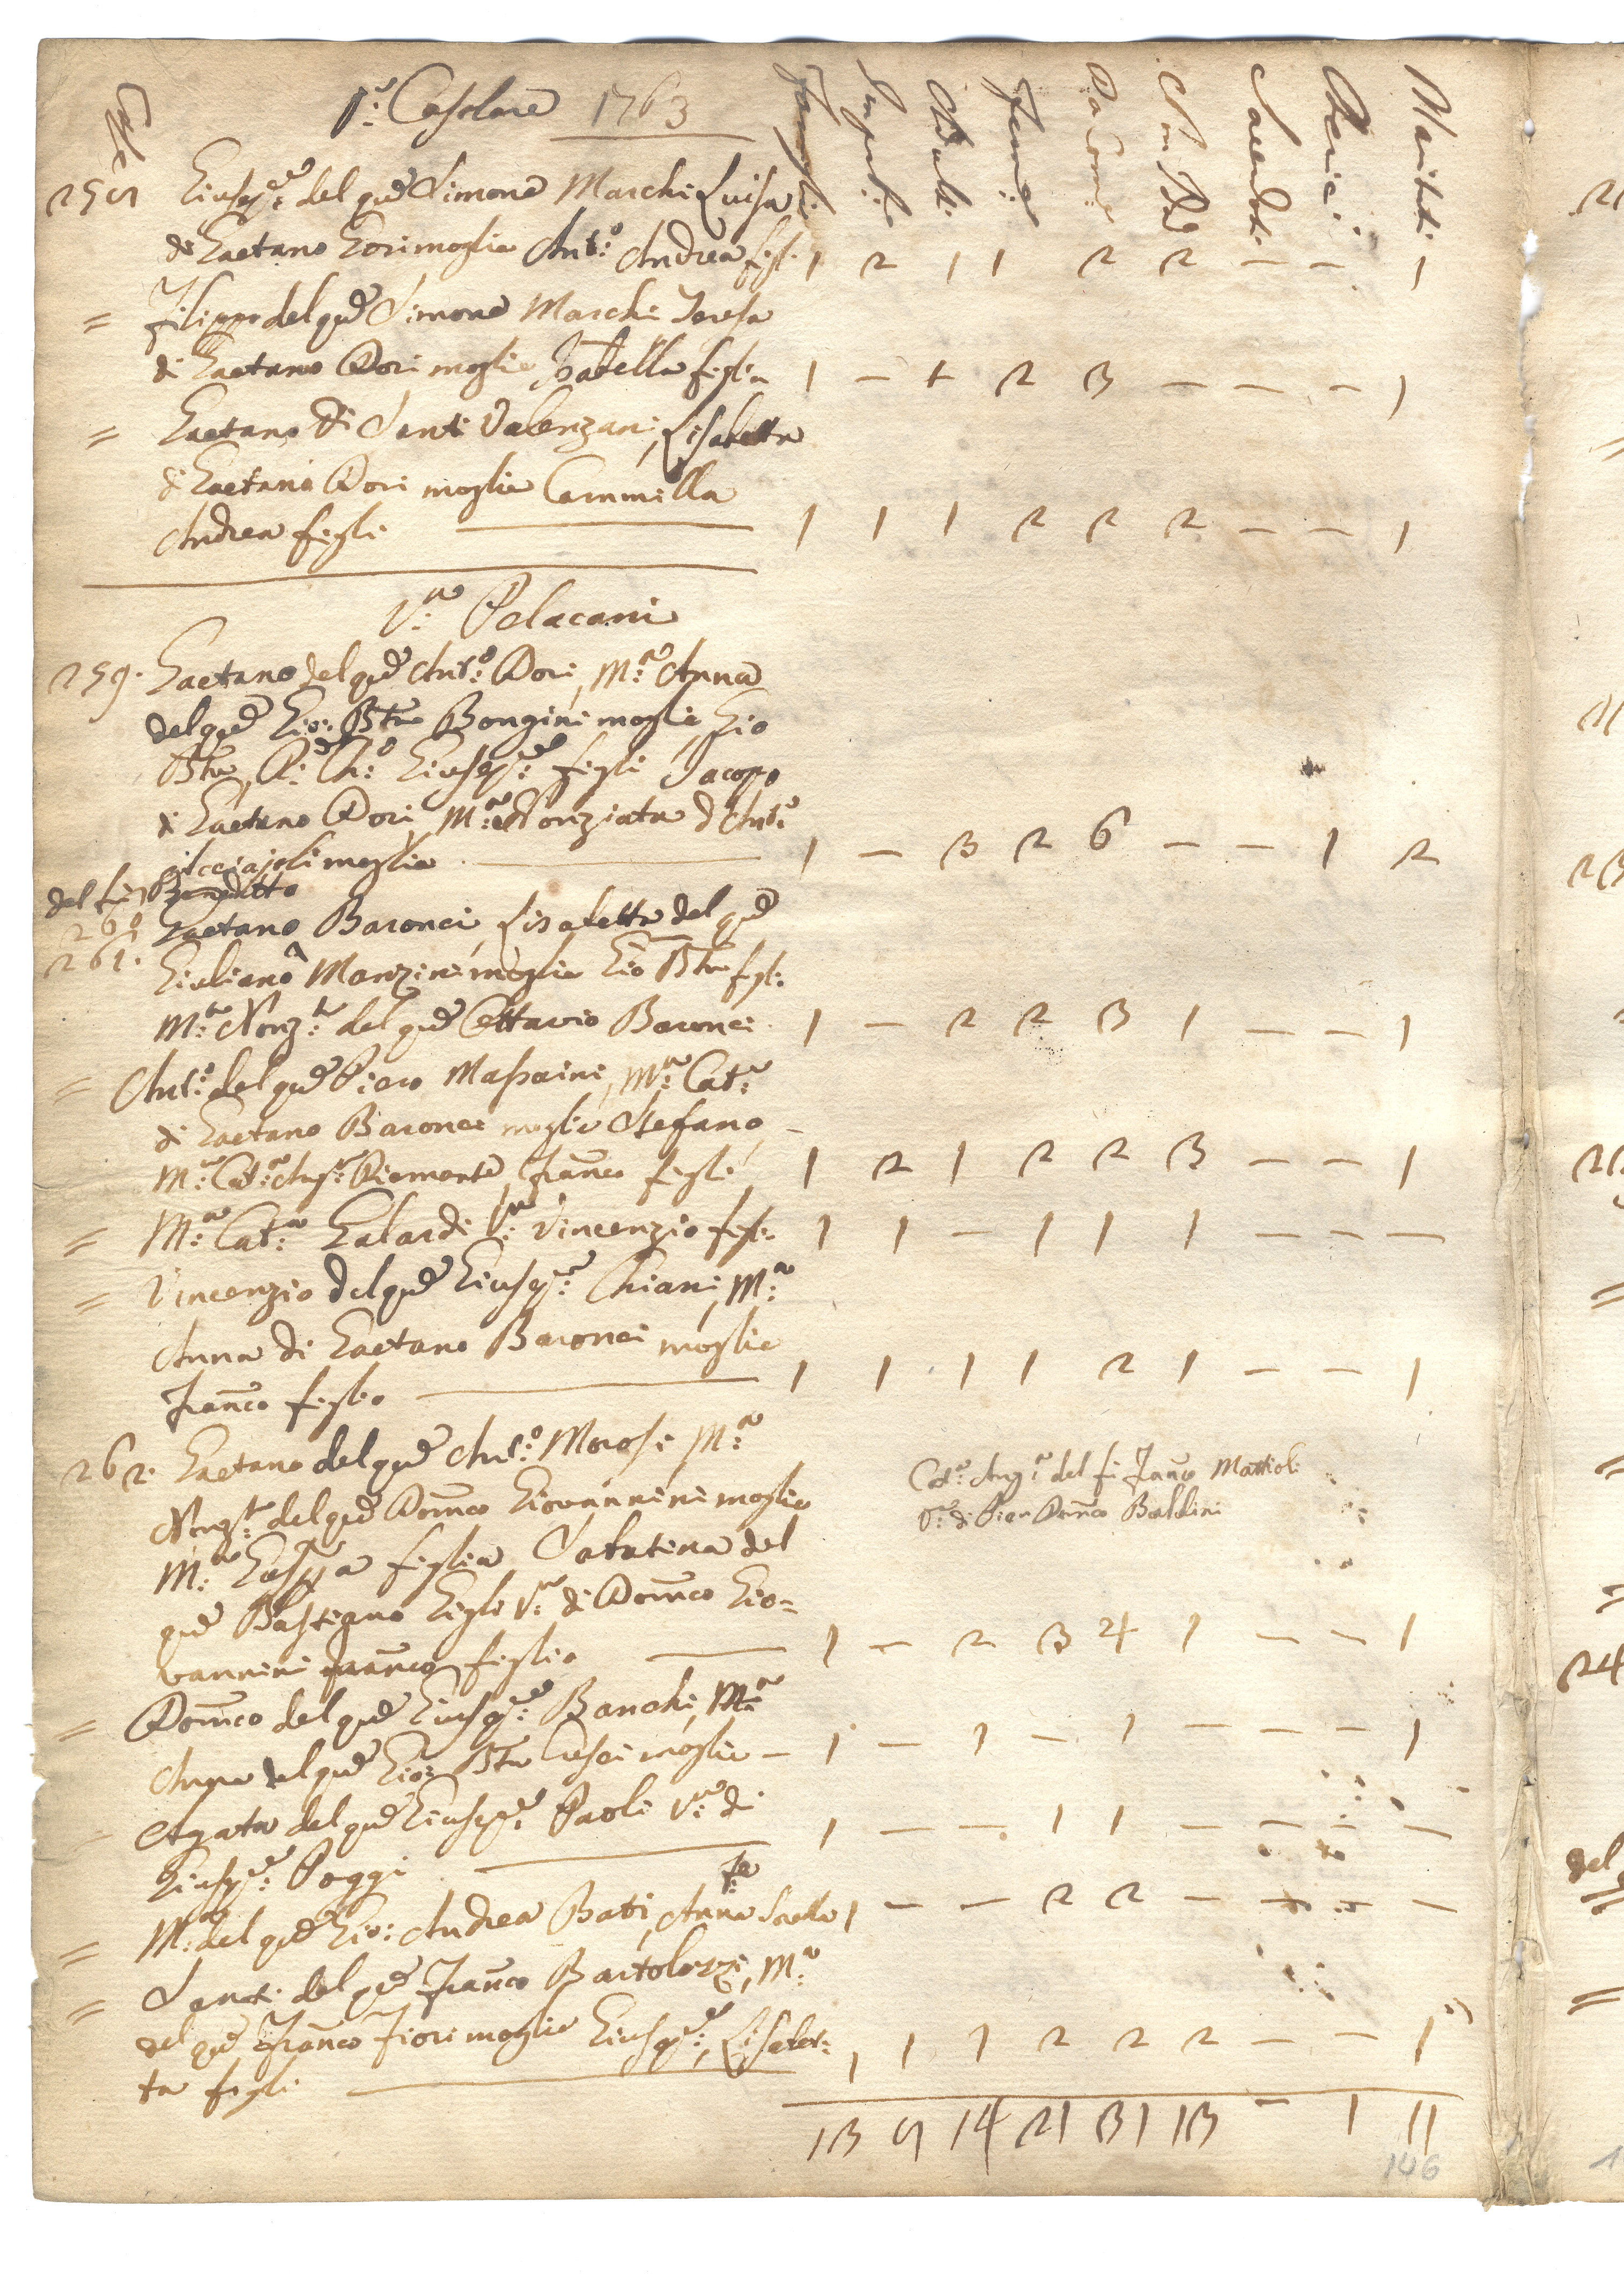 Case
V.ª Casolare 1763
Famigli:
Impub:
Adulti
Femine
Da Com:
Non Da
Sacerdoti
Cherici
Maritati
259 Giusep.e del qm Simone Marchi Luisa
di Gaetano Dori moglie Ant.o Andrea figli 1 2 1 1 2 2 — — 1
= Filippo del qm Simone Marchi Teresa
di Gaetano Dori moglie Isabella figlia 1 — 1 2 3 — — — 1
= Gaetano di Santi Valenzani, Lisabetta
di Gaetano Dori moglie Cammilla
Andrea figli 1 1 1 2 2 2 — — 1
V.a Pelacani
259. Gaetano del qm Ant.o Dori, M.a Anna
del qm Gio: Btta Bongini moglie, Gio
Btta, Giusep.e figli Jacopo
di Gaetano Dori, M.a Nonziata d'Ant.o
moglie 1 — 3 2 6 — — 1 2
del fu Benedetto
260 Gaetano Baronci, Lisabetta del qm
261. Giuliano Manzini moglie Gio Btta figli
M.a Nonz.ta del qm Ottavio Baronci 1 — 2 2 3 1 — — 1
= Ant.o del qm Piero Massaini, M.a Cat.a
di Gaetano Baronci moglie Stefano —
M.a Cat.a Ang.a Piemonte, Franco figli 1 2 1 2 2 3 — — 1
= M.a Cat.a Galardi V.a Vincenzio figl: 1 1 — 1 1 1 — — —
= Vincenzio del qm Giusep.e Chiani, M.a
Anna di Gaetano Baronci moglie
Franco figlio 1 1 1 1 2 1 — — 1
262. Gaetano del qm Ant.o Morosi M.a
Nonz.ta del qm Domco Giovannini moglie
M.a figlia Sabatina del
qm Bastiano Gigli V.a di Domco Gio=
vannini Franco figlio 1 — 2 3 4 1 — — 1
Cat.a Ang.a del fu Franco Mattioli
V.a di Pier Domco Baldini
= Domco del qm Giusep.e Banchi, M.a
Anna del qm Gio: Btta Cresci moglie — 1 — 1 — 1 — — — 1
Agata del qm Giusep.e Paoli V.a di
Giusep.e Poggi 1 — — 1 1 — — — —
= M.a del qm Gio: Andrea Bati, Anna Fr.a Sorella 1 — — 2 2 — — — —
= Santi del qm Franco Bartolozzi, M.a
del qm Franco Fiori moglie Giusep.e, Lisabet:
ta figli 1 1 1 2 2 2 — — 1
13 9 14 21 31 13 — 1 11
146